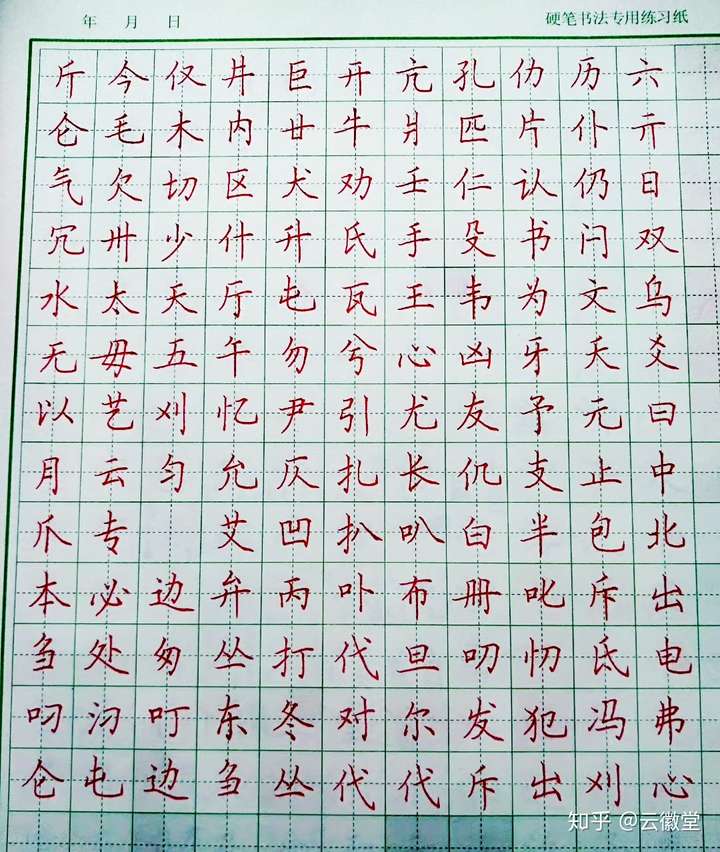 年 月 日 硬笔书法专用练习纸
斤今仅井巨开亢孔仂历六
仑毛木内廿牛爿匹片仆亓
气欠切区犬劝壬仁认仍日
冗卅少什升氏手殳书闩双
水太天厅屯瓦王韦为文乌
无毋五午勿兮心凶牙夭爻
以艺刈忆尹引尤友予元曰
月云匀允仄扎长仉支止中
爪专 艾凹扒叭白半包北
本必边弁丙卟布册叱斥出
刍处匆丛打代旦叨忉氐电
叼氻叮东冬对尔发犯冯弗
仑屯边刍丛代代斥出刈心
知乎 @云徽堂